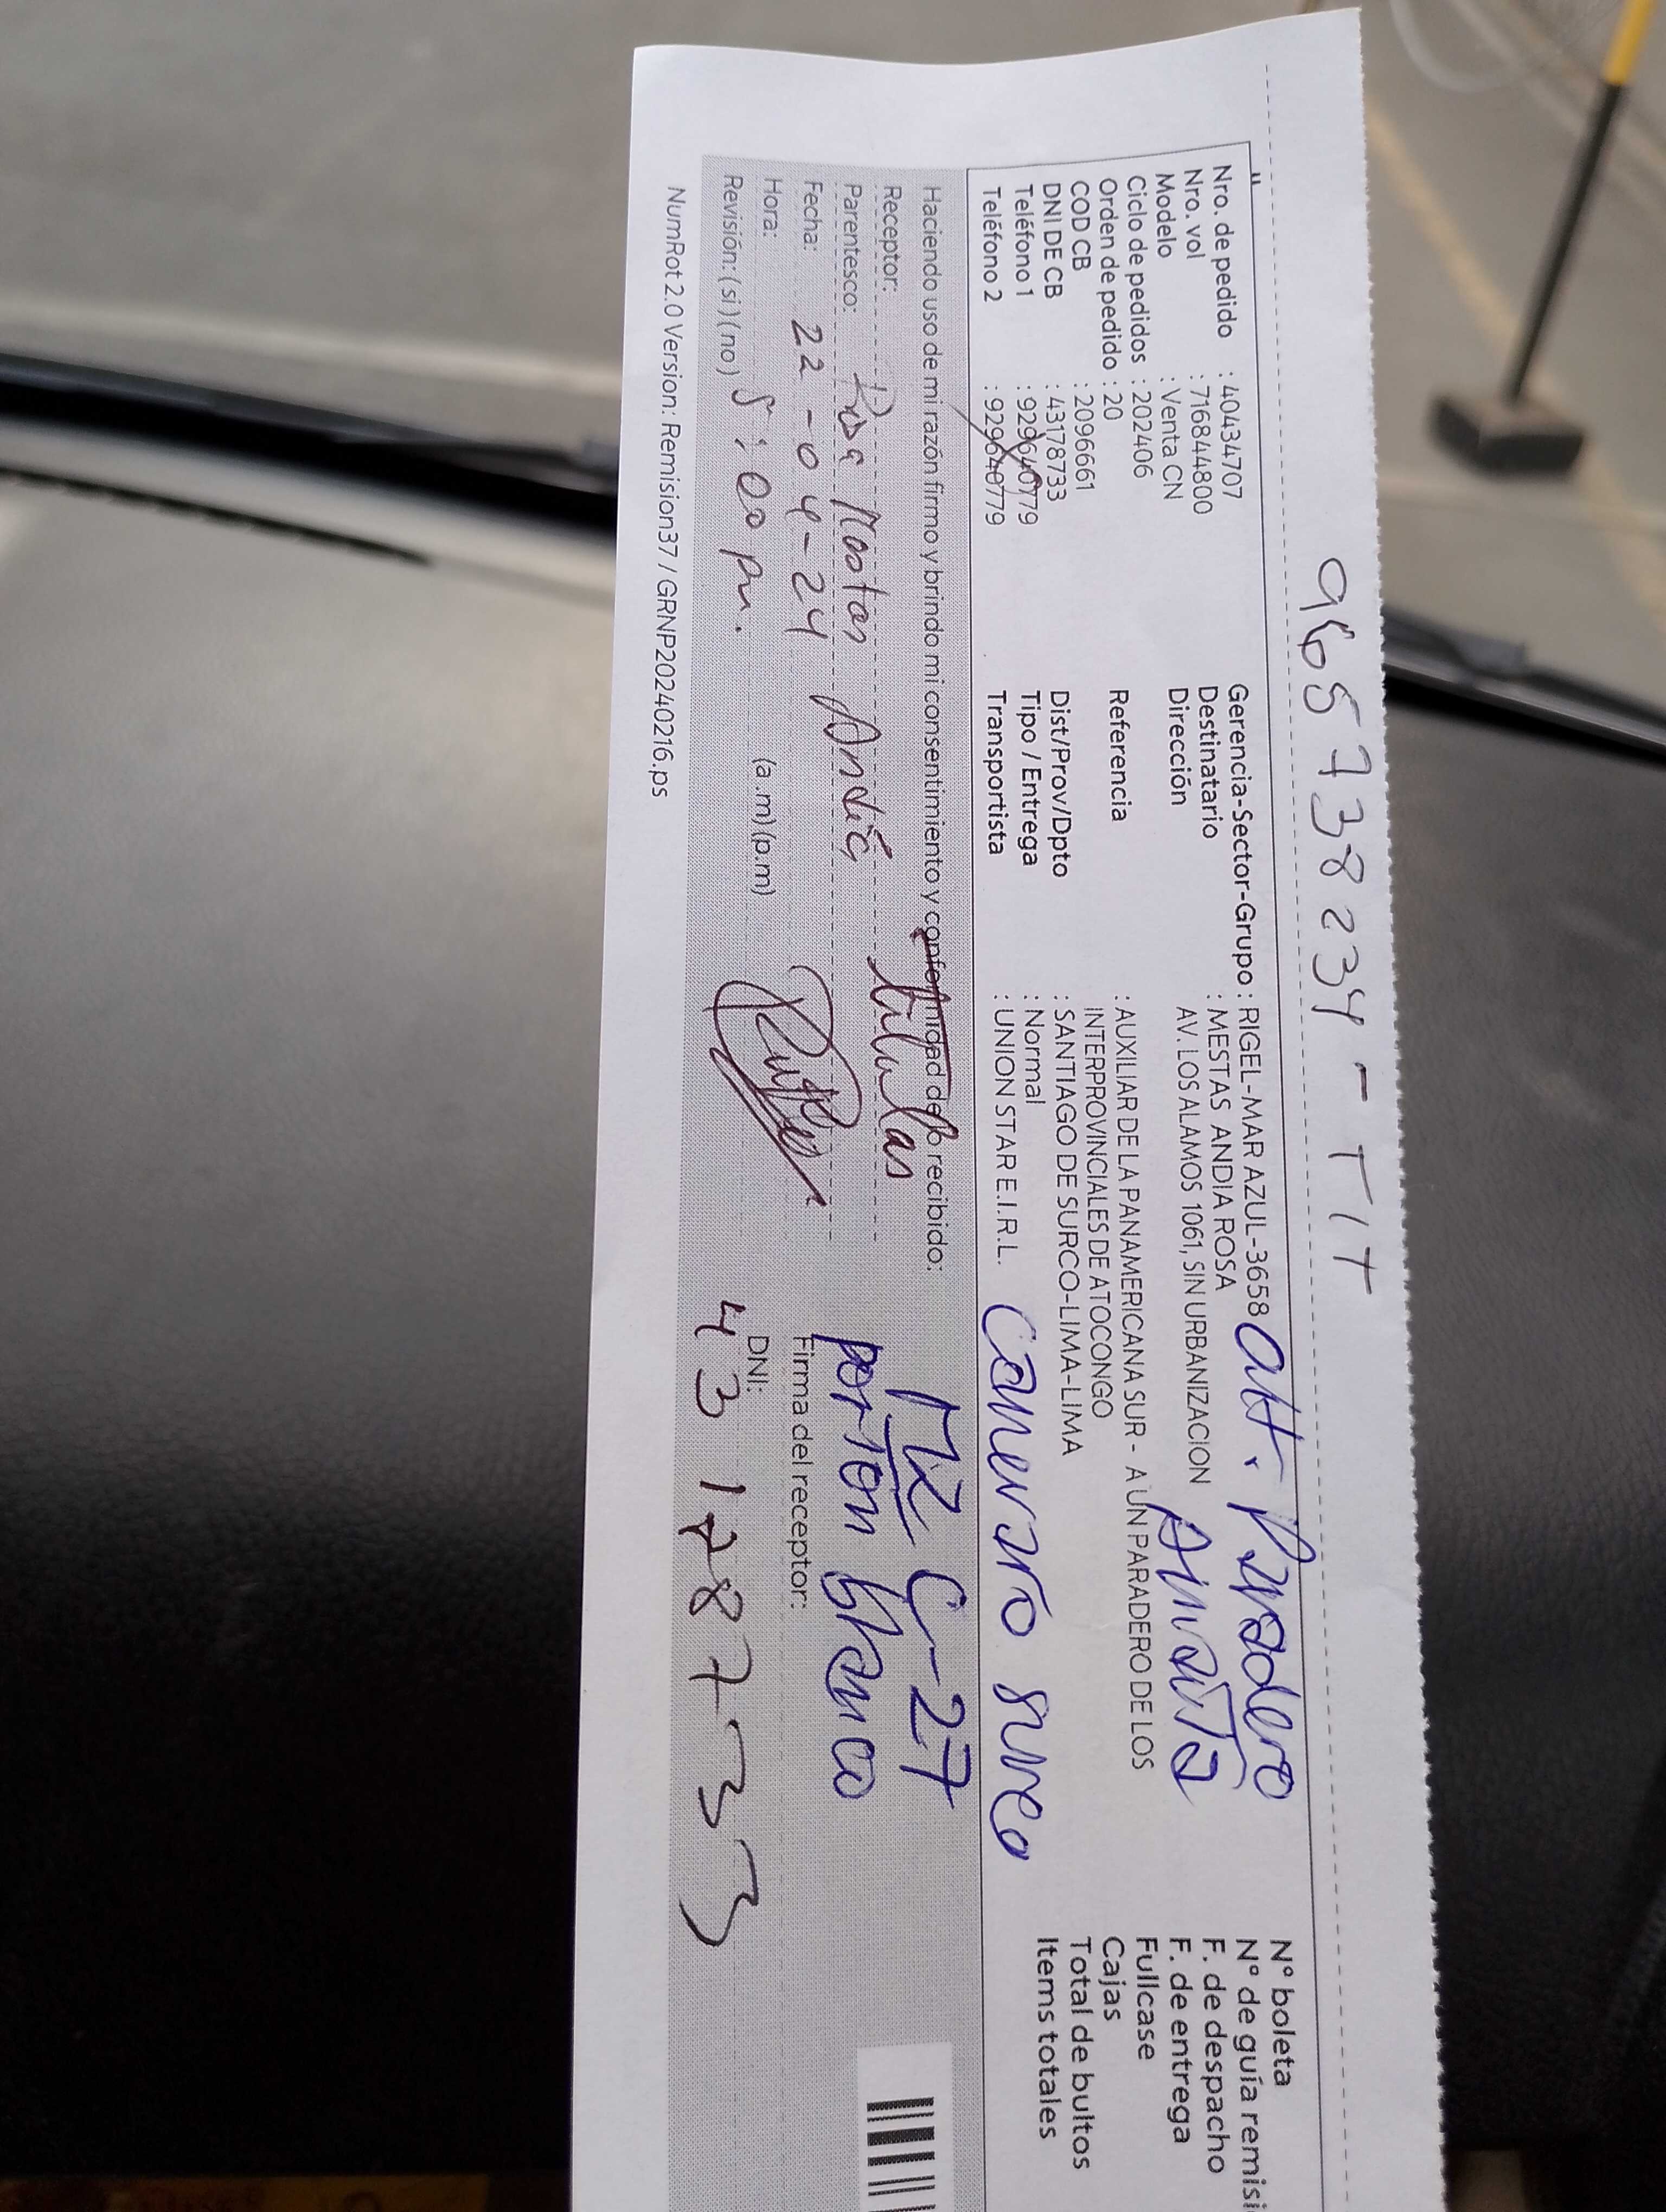 965738234 - TIT
Nro. de pedido : 40434707
Nro. vol : 716844800
Modelo : Venta CN
Ciclo de pedidos : 202406
Orden de pedido : 20
COD CB : 2096661
DNI DE CB : 43178733
Teléfono 1 : 929640779
Teléfono 2 : 929640779
Gerencia-Sector-Grupo : RIGEL-MAR AZUL-3658
Destinatario : MESTAS ANDIA ROSA
Dirección AV. LOS ALAMOS 1061, SIN URBANIZACION
Referencia : AUXILIAR DE LA PANAMERICANA SUR - A UN PARADERO DE LOS
INTERPROVINCIALES DE ATOCONGO
Dist/Prov/Dpto : SANTIAGO DE SURCO-LIMA-LIMA
Tipo / Entrega : Normal
Transportista : UNION STAR E.I.R.L.
alt. Paradero
Amauta
Canevaro surco
Mz C-27
porton blanco
Nº boleta
Nº de guía remisi
F. de despacho
F. de entrega
Fullcase
Cajas
Total de bultos
Items totales
Haciendo uso de mi razón firmo y brindo mi consentimiento y conformidad de lo recibido:
Receptor: Rosa Mestas Andia
Parentesco: titular
Fecha: 22-04-24
Hora: 5:00 pm. (a.m)(p.m)
Revisión: (si) (no)
Firma del receptor:
DNI: 43178733
NumRot 2.0 Version: Remision37 / GRNP20240216.ps